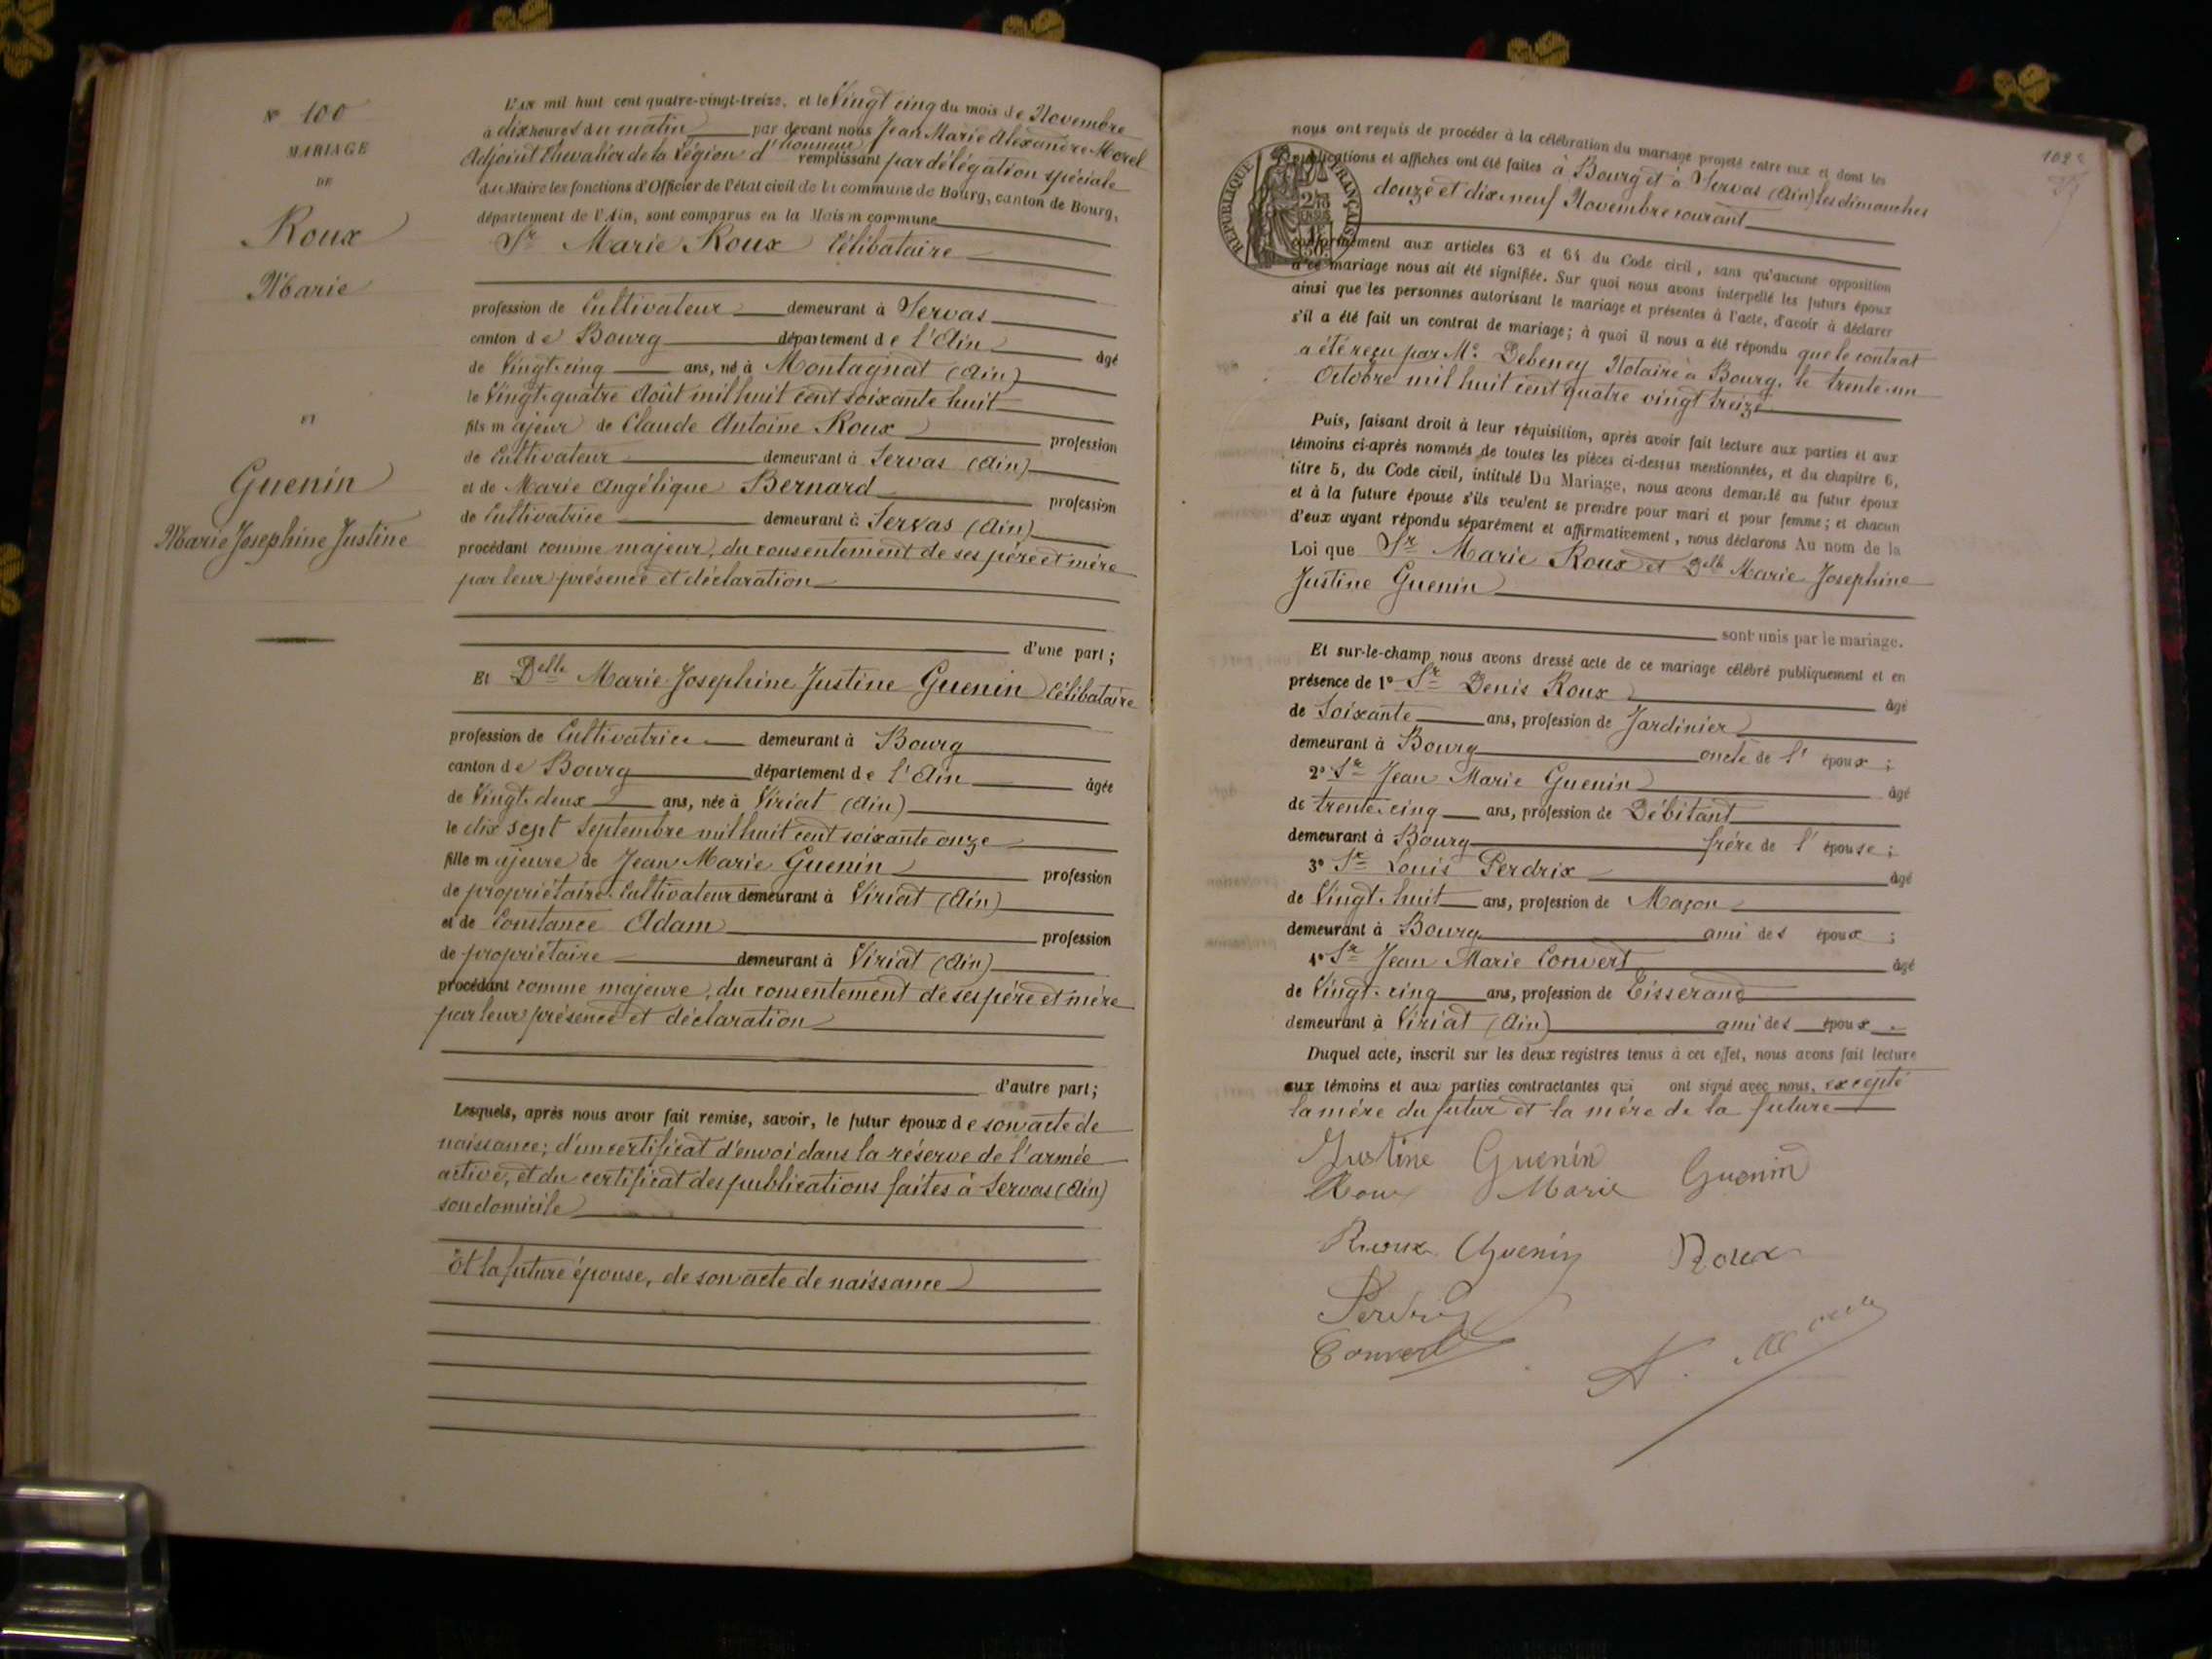 N° 100
MARIAGE
DE
Roux
Marie
ET
Guenin
Marie Josephine Justine
L'AN mil huit cent quatre-vingt-treize, et le Vingt cinq du mois de Novembre
à dix heures du matin par devant nous Jean Marie Alexandre Morel
Adjoint Chevalier de la Légion d'honneur remplissant par délégation spéciale
du Maire les fonctions d'Officier de l'état civil de la commune de Bourg, canton de Bourg,
département de l'Ain, sont comparus en la Maison commune
Sr Marie Roux Célibataire
profession de Cultivateur demeurant à Servas
canton de Bourg département de l'Ain âgé
de Vingt-cinq ans, né à Montagnat (Ain)
le Vingt-quatre Août mil huit cent soixante huit
fils majeur de Claude Antoine Roux profession
de Cultivateur demeurant à Servas (Ain)
et de Marie Angélique Bernard profession
de Cultivatrice demeurant à Servas (Ain)
procédant comme majeur, du consentement de ses père et mère
par leur présence et déclaration
d'une part;
Et Delle Marie Josephine Justine Guenin Célibataire
profession de Cultivatrice demeurant à Bourg
canton de Bourg département de l'Ain âgée
de Vingt-deux ans, née à Viriat (Ain)
le dix sept Septembre mil huit cent soixante onze
fille majeure de Jean Marie Guenin profession
de propriétaire-Cultivateur demeurant à Viriat (Ain)
et de Constance Adam profession
de propriétaire demeurant à Viriat (Ain)
procédant comme majeure, du consentement de ses père et mère
par leur présence et déclaration
d'autre part;
Lesquels, après nous avoir fait remise, savoir, le futur époux de son acte de
naissance; d'un certificat d'envoi dans la réserve de l'armée
active, et du certificat des publications faites à Servas (Ain)
son domicile
Et la future épouse, de son acte de naissance
102e
nous ont requis de procéder à la célébration du mariage projeté entre eux et dont les
publications et affiches ont été faites à Bourg et à Servas (Ain) les dimanches
douze et dix-neuf Novembre courant
REPUBLIQUE FRANÇAISE
conformément aux articles 63 et 64 du Code civil, sans qu'aucune opposition
à ce mariage nous ait été signifiée. Sur quoi nous avons interpellé les futurs époux
ainsi que les personnes autorisant le mariage et présentes à l'acte, d'avoir à déclarer
s'il a été fait un contrat de mariage; à quoi il nous a été répondu que le contrat
a été reçu par Me Debeney Notaire à Bourg, le trente-un
Octobre mil huit cent quatre vingt treize
Puis, faisant droit à leur réquisition, après avoir fait lecture aux parties et aux
témoins ci-après nommés de toutes les pièces ci-dessus mentionnées, et du chapitre 6,
titre 5, du Code civil, intitulé Du Mariage, nous avons demandé au futur époux
et à la future épouse s'ils veulent se prendre pour mari et pour femme; et chacun
d'eux ayant répondu séparément et affirmativement, nous déclarons Au nom de la
Loi que Sr Marie Roux et Delle Marie Josephine
Justine Guenin
sont unis par le mariage.
Et sur-le-champ nous avons dressé acte de ce mariage célébré publiquement et en
présence de 1° Sr Denis Roux âgé
de Soixante ans, profession de Jardinier
demeurant à Bourg oncle de l'époux;
2° Sr Jean Marie Guenin âgé
de trente-cinq ans, profession de Débitant
demeurant à Bourg frère de l'épouse;
3° Sr Louis Perdrix âgé
de Vingt-huit ans, profession de Maçon
demeurant à Bourg ami des époux;
4° Sr Jean Marie Convert âgé
de Vingt-cinq ans, profession de Tisserand
demeurant à Viriat (Ain) ami des époux.
Duquel acte, inscrit sur les deux registres tenus à cet effet, nous avons fait lecture
aux témoins et aux parties contractantes qui ont signé avec nous, excepté
la mère du futur et la mère de la future
Justine Guenin Guenin
Roux Marie
Roux Guenin Roux
Perdrix
Convert
A. Morel